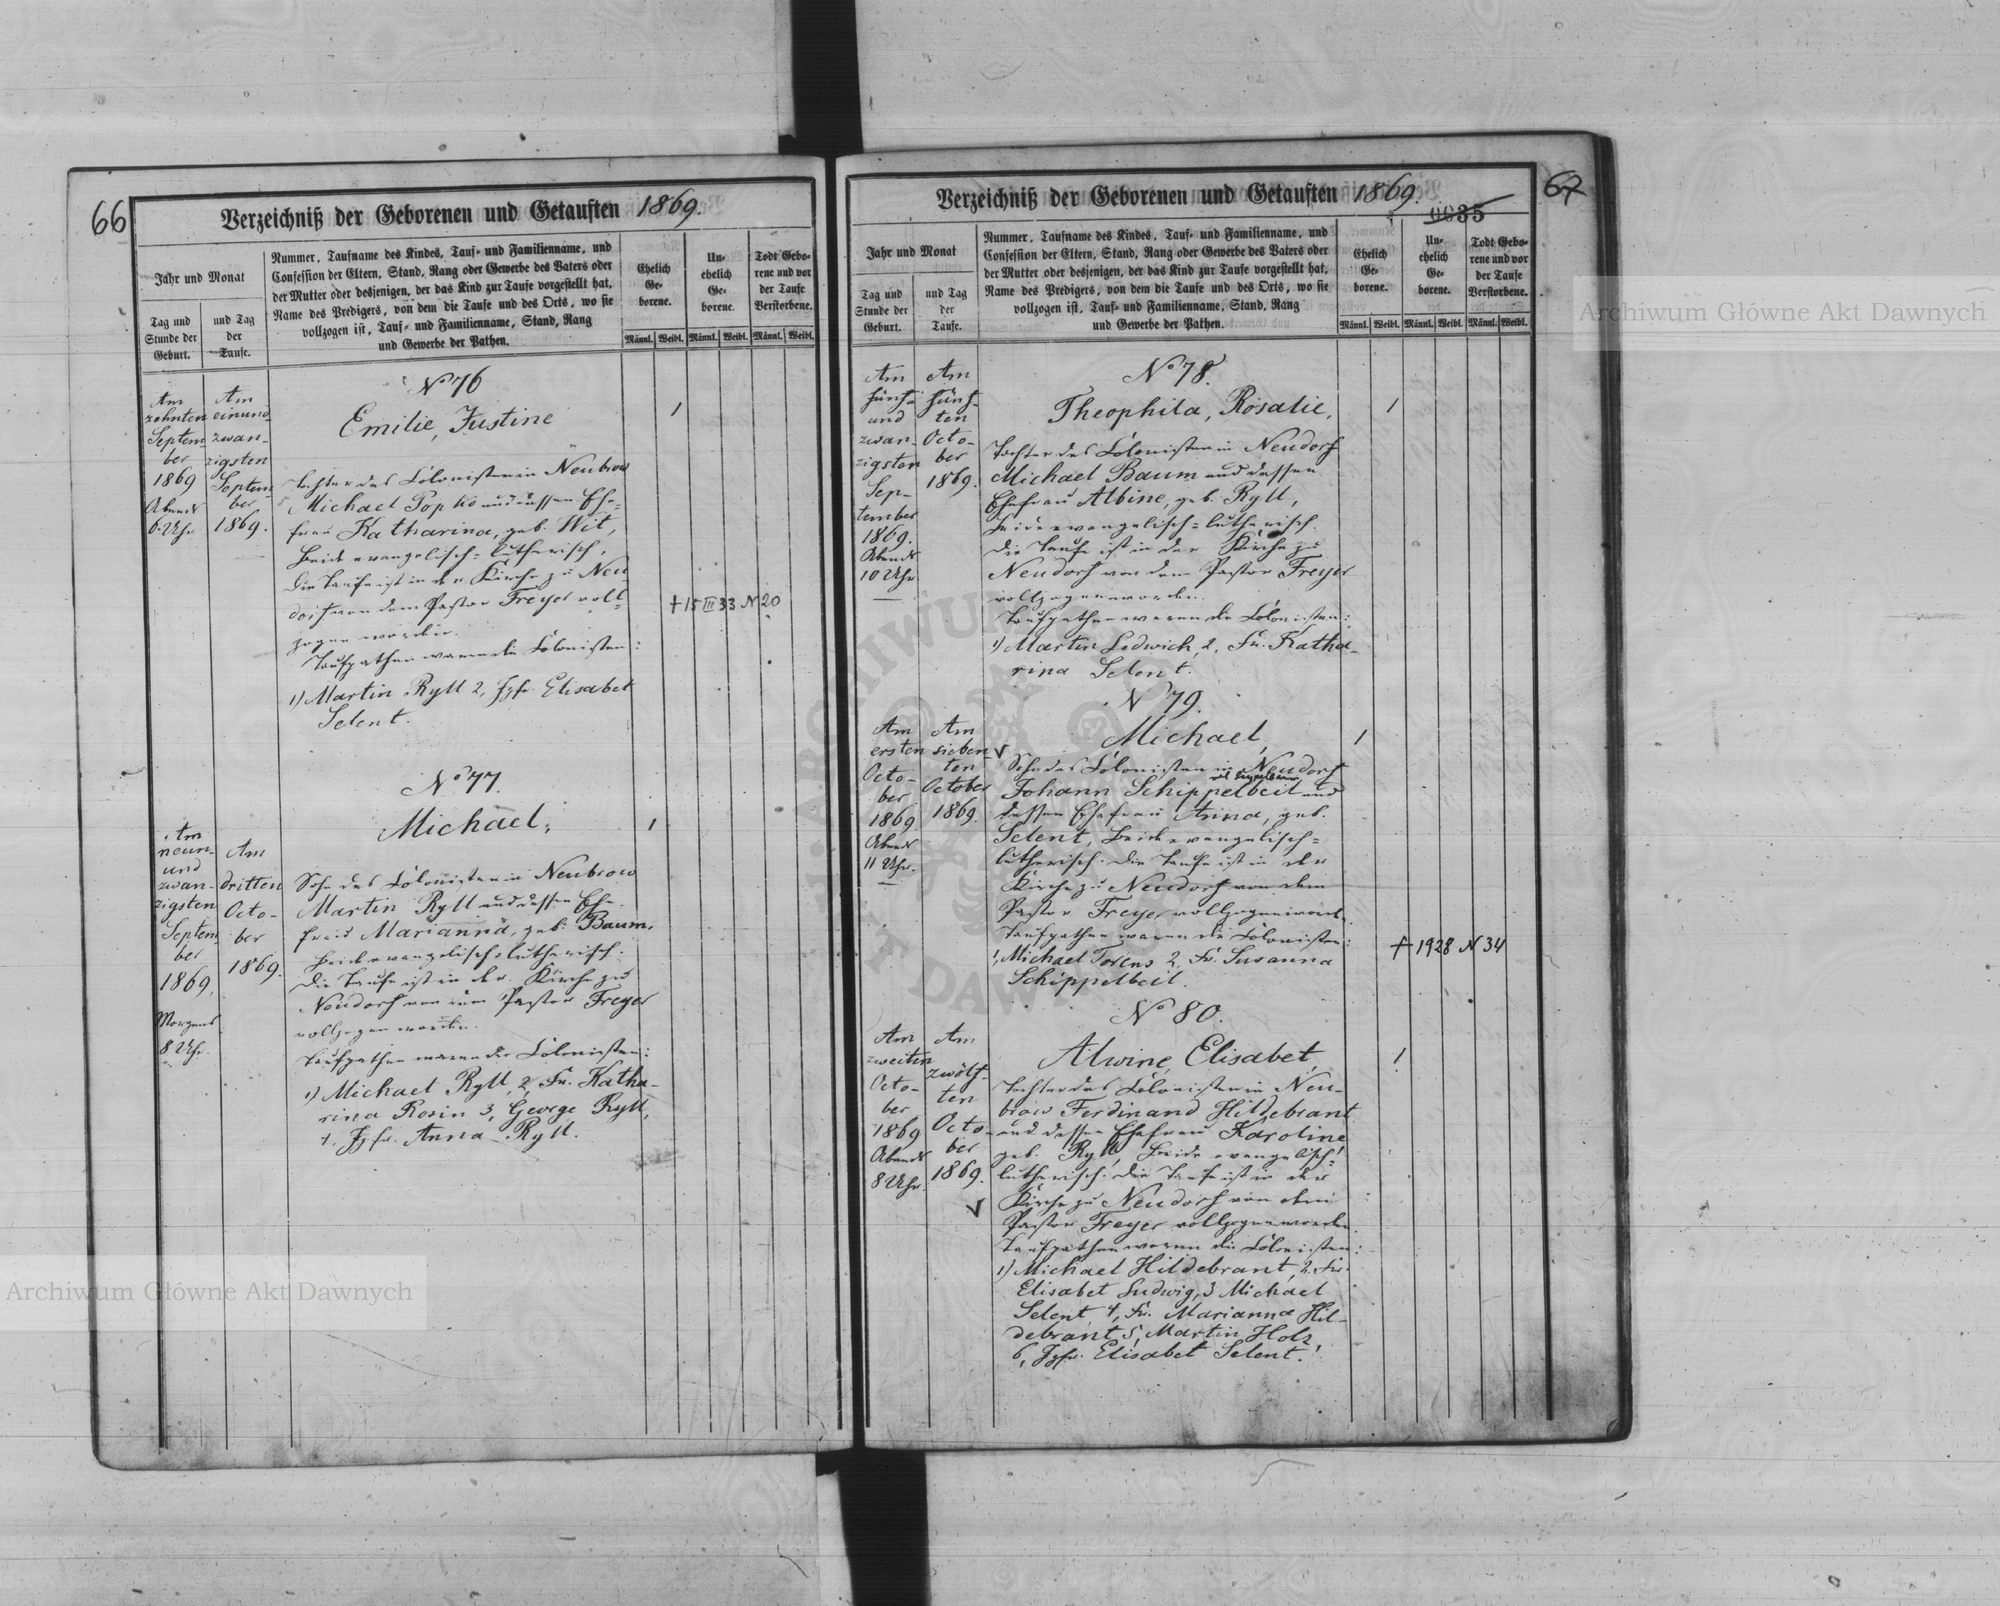 66
Verzeichniß der Geborenen und Getauften 1869.
Jahr und Monat
Tag und
Stunde der
Geburt.
und Tag
der
Taufe.
Nummer, Taufname des Kindes, Tauf- und Familienname, und
Confession der Eltern, Stand, Rang oder Gewerbe des Vaters oder
der Mutter oder desjenigen, der das Kind zur Taufe vorgestellt hat,
Name des Predigers, von dem die Taufe und des Orts, wo sie
vollzogen ist, Tauf- und Familienname, Stand, Rang
und Gewerbe der Pathen.
Ehelich
Ge-
borene.
Un-
ehelich
Ge-
borene.
Todt Gebo-
rene und vor
der Taufe
Verstorbene.
Männl. Weibl. Männl. Weibl. Männl. Weibl.
Am
zehnten
Septem-
ber
1869
Abends
6 Uhr
Am
einund-
zwan-
zigsten
Septem-
ber
1869.
No 76
Emilie, Justine
Tochter des Colonisten in Neubrow
Michael Popko und dessen Ehe-
frau Katharina, geb. Wit,
Beide evangelisch-lutherisch.
Die Taufe ist in der Kirche zu Neu-
dorf von dem Pastor Freyer voll-
zogen worden.
Taufpathen waren die Colonisten:
1) Martin Ryll 2, Jgfr. Elisabet
Selent.
1
† 15 III 33 N 20
No 77.
Michael,
Am
neun-
und
zwan-
zigsten
Septem-
ber
1869.
Morgens
8 Uhr.
Am
dritten
Octo-
ber
1869.
Sohn des Colonisten in Neubrow
Martin Ryll und dessen Ehe-
frau Marianna, geb. Baum,
Beide evangelisch-lutherisch.
Die Taufe ist in der Kirche zu
Neudorf von dem Pastor Freyer
vollzogen worden.
Taufpathen waren die Colonisten:
1) Michael Ryll, 2, Fr. Katha-
rina Rosin 3, George Ryll,
4, Jgfr. Anna Ryll.
1
67
Verzeichniß der Geborenen und Getauften 1869.
0035
Jahr und Monat
Tag und
Stunde der
Geburt.
und Tag
der
Taufe.
Nummer, Taufname des Kindes, Tauf- und Familienname, und
Confession der Eltern, Stand, Rang oder Gewerbe des Vaters oder
der Mutter oder desjenigen, der das Kind zur Taufe vorgestellt hat,
Name des Predigers, von dem die Taufe und des Orts, wo sie
vollzogen ist, Tauf- und Familienname, Stand, Rang
und Gewerbe der Pathen.
Ehelich
Ge-
borene.
Un-
ehelich
Ge-
borene.
Todt Gebo-
rene und vor
der Taufe
Verstorbene.
Männl. Weibl. Männl. Weibl. Männl. Weibl.
Am
fünf-
und
zwan-
zigsten
Sep-
tember
1869.
Abends
10 Uhr.
Am
fünf-
ten
Octo-
ber
1869.
No 78.
Theophila, Rosalie,
Tochter des Colonisten in Neudorf
Michael Baum und dessen
Ehefrau Albine, geb. Ryll,
Beide evangelisch-lutherisch.
Die Taufe ist in der Kirche zu
Neudorf von dem Pastor Freyer
vollzogen worden.
Taufpathen waren die Colonisten:
1) Martin Lodwich 2, Fr. Katha-
rina Selent.
1
No 79.
Michael,
Am
ersten
Octo-
ber
1869.
Abends
11 Uhr.
Am
sieben-
ten
October
1869.
Sohn des Colonisten in Neudorf
Johann Schippelbeit und
dessen Ehefrau Anna, geb.
Selent, Beide evangelisch-
lutherisch. Die Taufe ist in der
Kirche zu Neudorf von dem
Pastor Freyer vollzogen word.
Taufpathen waren die Colonisten:
1, Michael Torens 2, Fr. Susanna
Schippelbeit.
1
† 1928 N 34
No 80.
Alwine, Elisabet,
Am
zweiten
Octo-
ber
1869
Abends
8 Uhr.
Am
zwölf-
ten
Octo-
ber
1869.
Tochter des Colonisten in Neu-
brow Ferdinand Hildebrant
und dessen Ehefrau Karoline
geb. Ryll, Beide evangelisch-
lutherisch. Die Taufe ist in der
Kirche zu Neudorf von dem
Pastor Freyer vollzogen worden.
Taufpathen waren die Colonisten:
1) Michael Hildebrant, 2, Fr.
Elisabet Ludwig, 3 Michael
Selent 4, Fr. Marianna Hil-
debrant 5, Martin Holz
6, Jgfr. Elisabet Selent.
1
Archiwum Główne Akt Dawnych
Archiwum Główne Akt Dawnych